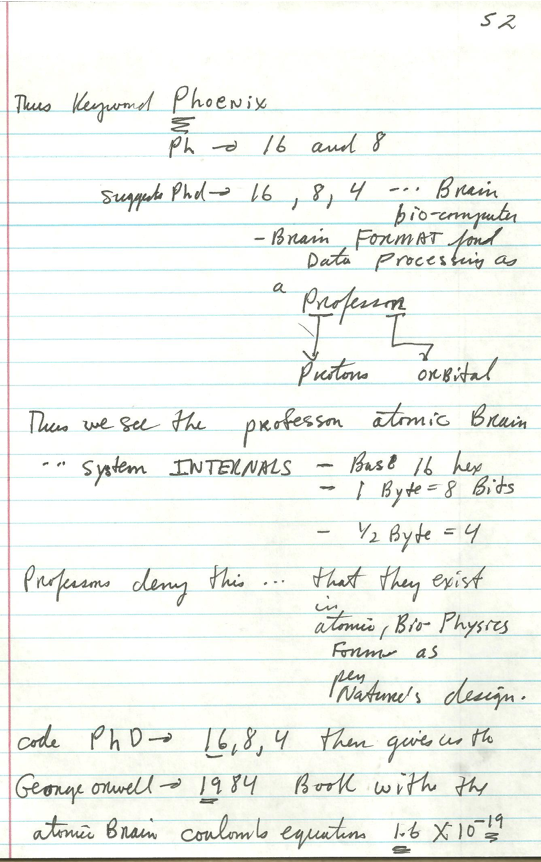 52
Thus Keyword Phoenix
Ph → 16 and 8
suggests Phd → 16, 8, 4 ... Brain
bio-computer
- Brain FORMAT fond
Data Processing as
a
Professor
Protons orBital
Thus we see the professor atomic Brain
... system INTERNALS - Base 16 hex
- 1 Byte = 8 Bits
- 1/2 Byte = 4
Professors deny this ... that they exist
in
atomic, Bio-Physics
Form as
per
Nature's design.
code PhD → 16,8,4 then gives us th
George orwell → 1984 Book with the
atomic Brain coulombs equation 1.6 X 10⁻¹⁹